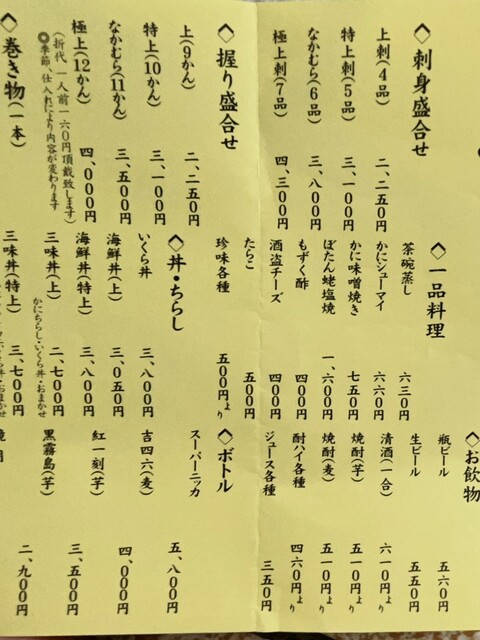 ◇刺身盛合せ
上刺(4品) 二、二五〇円
特上刺(5品) 三、一〇〇円
なかむら(6品) 三、八〇〇円
極上刺(7品) 四、三〇〇円
◇握り盛合せ
上(9かん) 二、二五〇円
特上(10かん) 三、一〇〇円
なかむら(11かん) 三、五〇〇円
極上(12かん) 四、〇〇〇円
(折代 一人前一六〇円頂戴致します)
◎季節、仕入れにより内容が変わります
◇巻き物(一本)
◇一品料理
茶碗蒸し 六三〇円
かにシューマイ 六六〇円
かに味噌焼き 七五〇円
ぼたん蛯塩焼 一、六〇〇円
もずく酢 四〇〇円
酒盗チーズ 四〇〇円
たらこ 五〇〇円
珍味各種 五〇〇円より
◇丼・ちらし
いくら丼 三、八〇〇円
海鮮丼(上) 三、〇五〇円
海鮮丼(特上) 三、八〇〇円
三味丼(上) 二、七〇〇円
かにちらし・いくら丼・おまかせ
三味丼(特上) 三、七〇〇円
◇お飲物
瓶ビール 五六〇円
生ビール 五五〇円
清酒(一合) 六一〇円より
焼酎(芋) 五一〇円より
焼酎(麦) 五一〇円より
酎ハイ各種 四六〇円より
ジュース各種 三五〇円
◇ボトル
スーパーニッカ 五、八〇〇円
吉四六(麦) 四、〇〇〇円
紅一刻(芋) 三、五〇〇円
黒霧島(芋) 二、九〇〇円